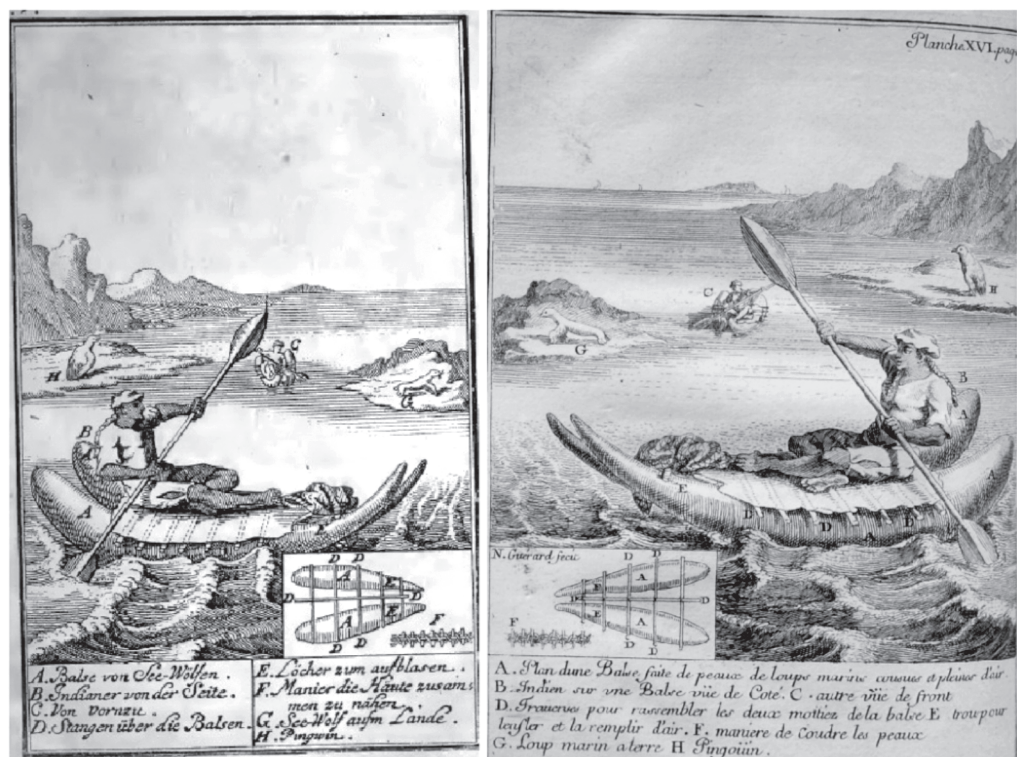 A. Balse von See-Wölfen.
B. Indianer von der Seite.
C. Von vornzu.
D. Stangen über die Balsen.
E. Löcher zum aufblasen.
F. Manier die Häute zusam-
men zu nähen.
G. See-Wolf aufm Lande.
H. Pingwin.
H
C
G
B
A
D D
A E
D D
A E
D
F
Planche XVI. pag
C
H
G
B
A
A
E
D D D
A
N. Guerard fecit
D D
E A
D D
E A
D D
F
A. Plan dune Balse faite de peaux de loups marins cousues et pleines d'air.
B. Indien sur vne Balse vüe de Coté. C. autre vüe de front
D. Trauerses pour rassembler les deux mottiez de la balse E trou pour
lenfler et la remplir d'air. F. maniere de Coudre les peaux
G. Loup marin a terre H Pingoüin.